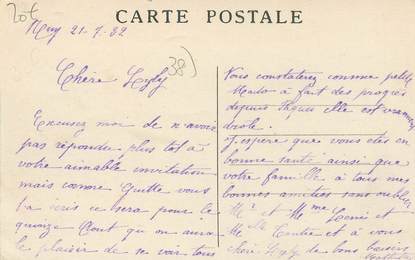 20€
CARTE POSTALE
Huy 21-7-32
38)
Chère Lyly
Excusez moi de n'avoir
pas répondu plus tôt à
votre aimable invitation
mais comme vous
la écris ce sera pour le
quinze Aout qu on aura
le plaisir de se voir tous
Vous constaterez comme petite
Mado à fait des progrès
depuis Pâques elle est vraiment
drole.
J'espère que vous etes en
bonne santé ainsi que
votre famille à tous mes
bonnes amitiés sans oublier
Mr et Mme et
Melle et à vous
chère Lyly de bons baisers